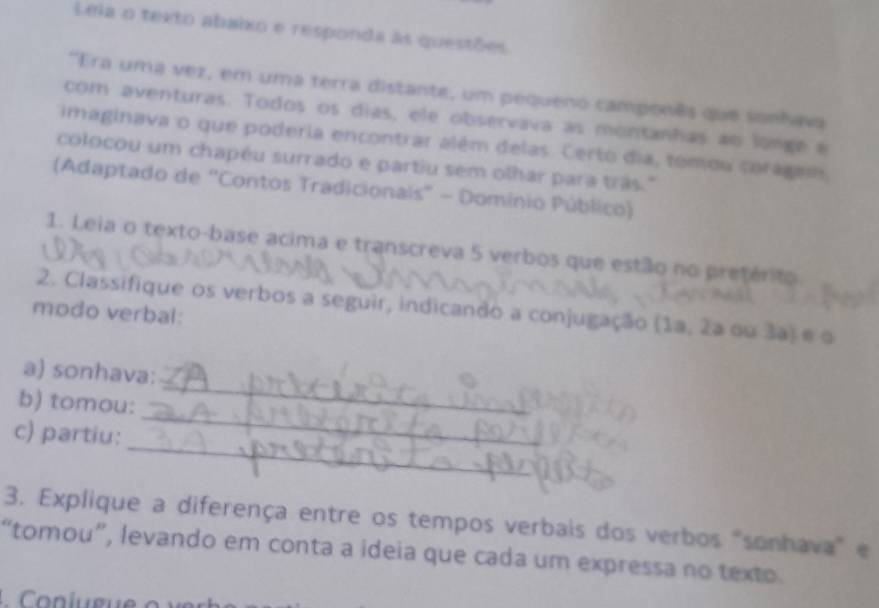 Leia o texto abaixo e responda às questões
"Era uma vez, em uma terra distante, um pequeno camponês que sonhava
com aventuras. Todos os dias, ele observava as montanhas ao longe e
imaginava o que poderia encontrar além delas. Certo dia, tomou coragem,
colocou um chapéu surrado e partiu sem olhar para trás."
(Adaptado de "Contos Tradicionais" – Domínio Público)
1. Leia o texto-base acima e transcreva 5 verbos que estão no pretérito
2. Classifique os verbos a seguir, indicando a conjugação (1a, 2a ou 3a) e o
modo verbal:
a) sonhava: pretérito imperfeito
b) tomou: 2A pretérito
c) partiu: 3A pretérito
3. Explique a diferença entre os tempos verbais dos verbos "sonhava" e
"tomou", levando em conta a ideia que cada um expressa no texto.